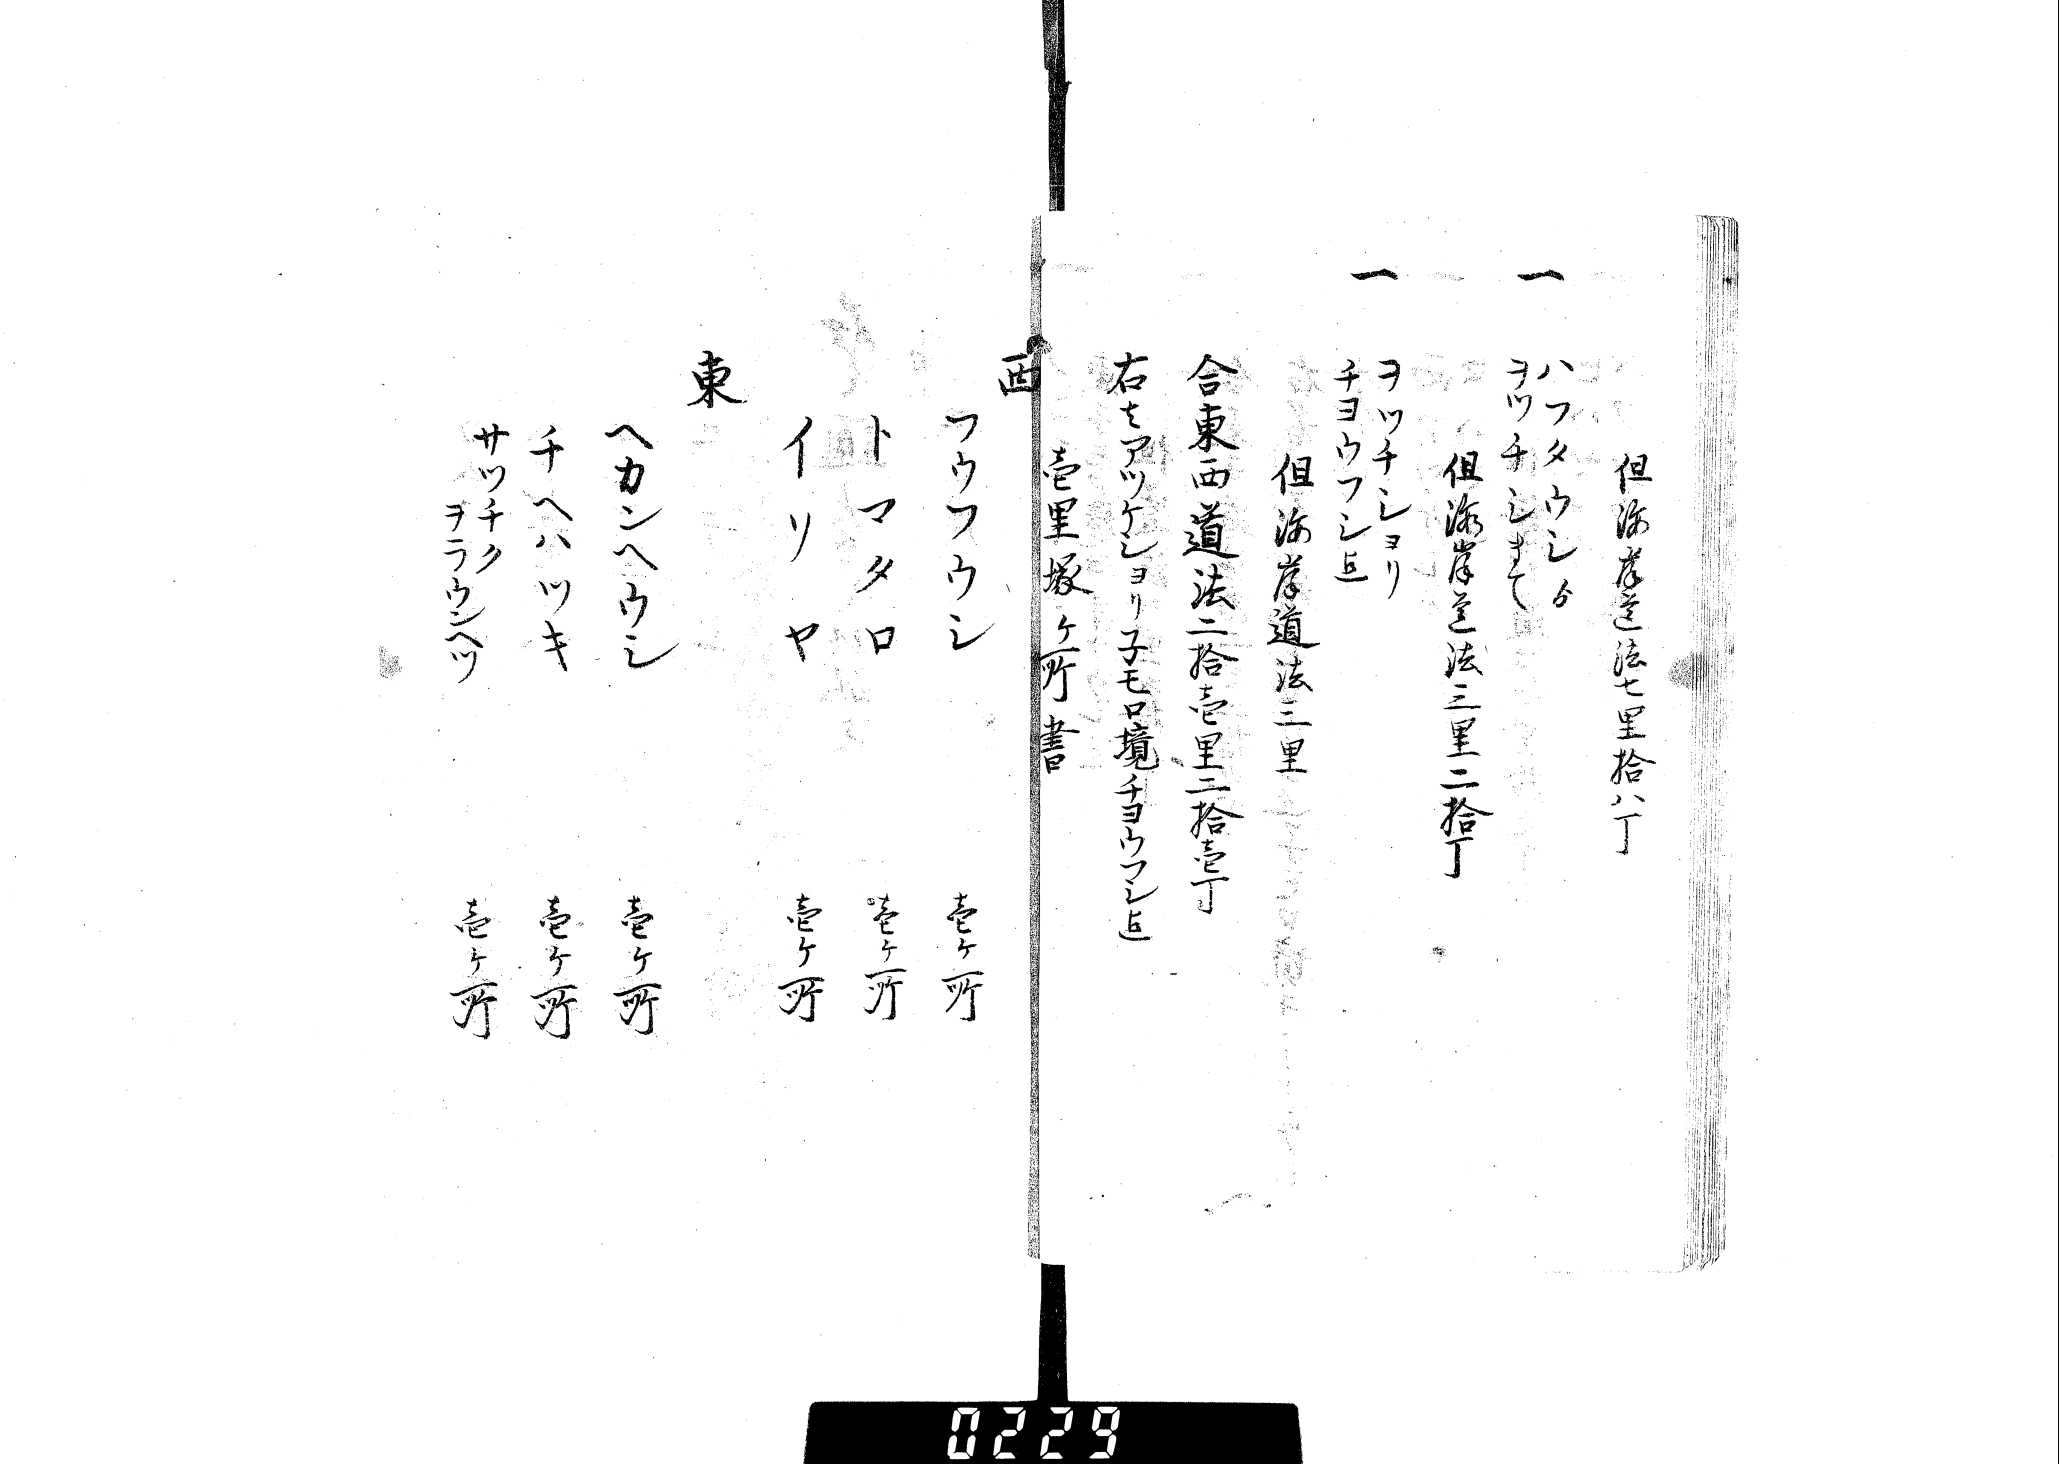 但海岸道法七里拾八丁
一 ハフタウシゟ
ヲツチシまて
但海岸道法三里二拾丁
一 ヲツチシヨリ
チヨウフシ迄
但海岸道法三里
合東西道法二拾壱里二拾壱丁
右モアツケシヨリ子モロ境チヨウフシ迄
壱里塚ケ所書
西
フウフウシ 壱ケ所
トマタロ 壱ケ所
イリヤ 壱ケ所
東
ヘカンヘウシ 壱ケ所
チヘハツキ 壱ケ所
サツチク
ヲラウンヘツ 壱ケ所
0229